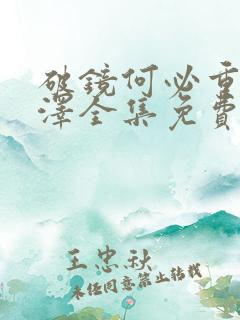 破鏡何必重
澤全集免費
王忠秋
未经同意禁止转载